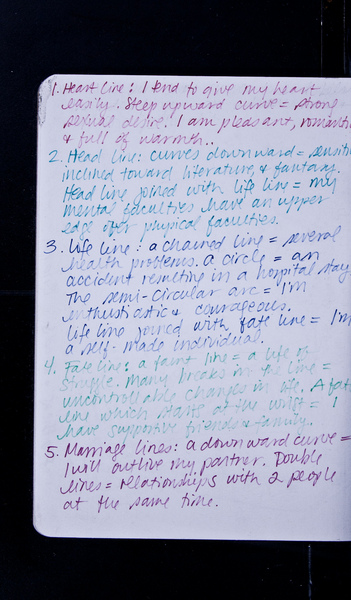 1. Heart Line: I tend to give my heart
easily. Steep upward curve = strong
sexual desire. I am pleasant, romantic
& full of warmth..
2. Head Line: curves downward = sensitive
inclined toward literature & fantasy.
Head line joined with life line = my
mental faculties have an upper
edge over physical faculties.
3. Life line: a chained line = several
health problems. a circle = an
accident resulting in a hospital stay.
The semi-circular arc = I'm
enthusiastic & courageous.
life line joined with fate line = I'm
a self-made individual.
4. Fate line: a faint line = a life of
struggle. many breaks in the line =
uncontrollable changes in life. A fate
line which starts at the wrist = I
have supportive friends & family.
5. Marriage lines: a downward curve =
I will outlive my partner. Double
lines = relationships with 2 people
at the same time.